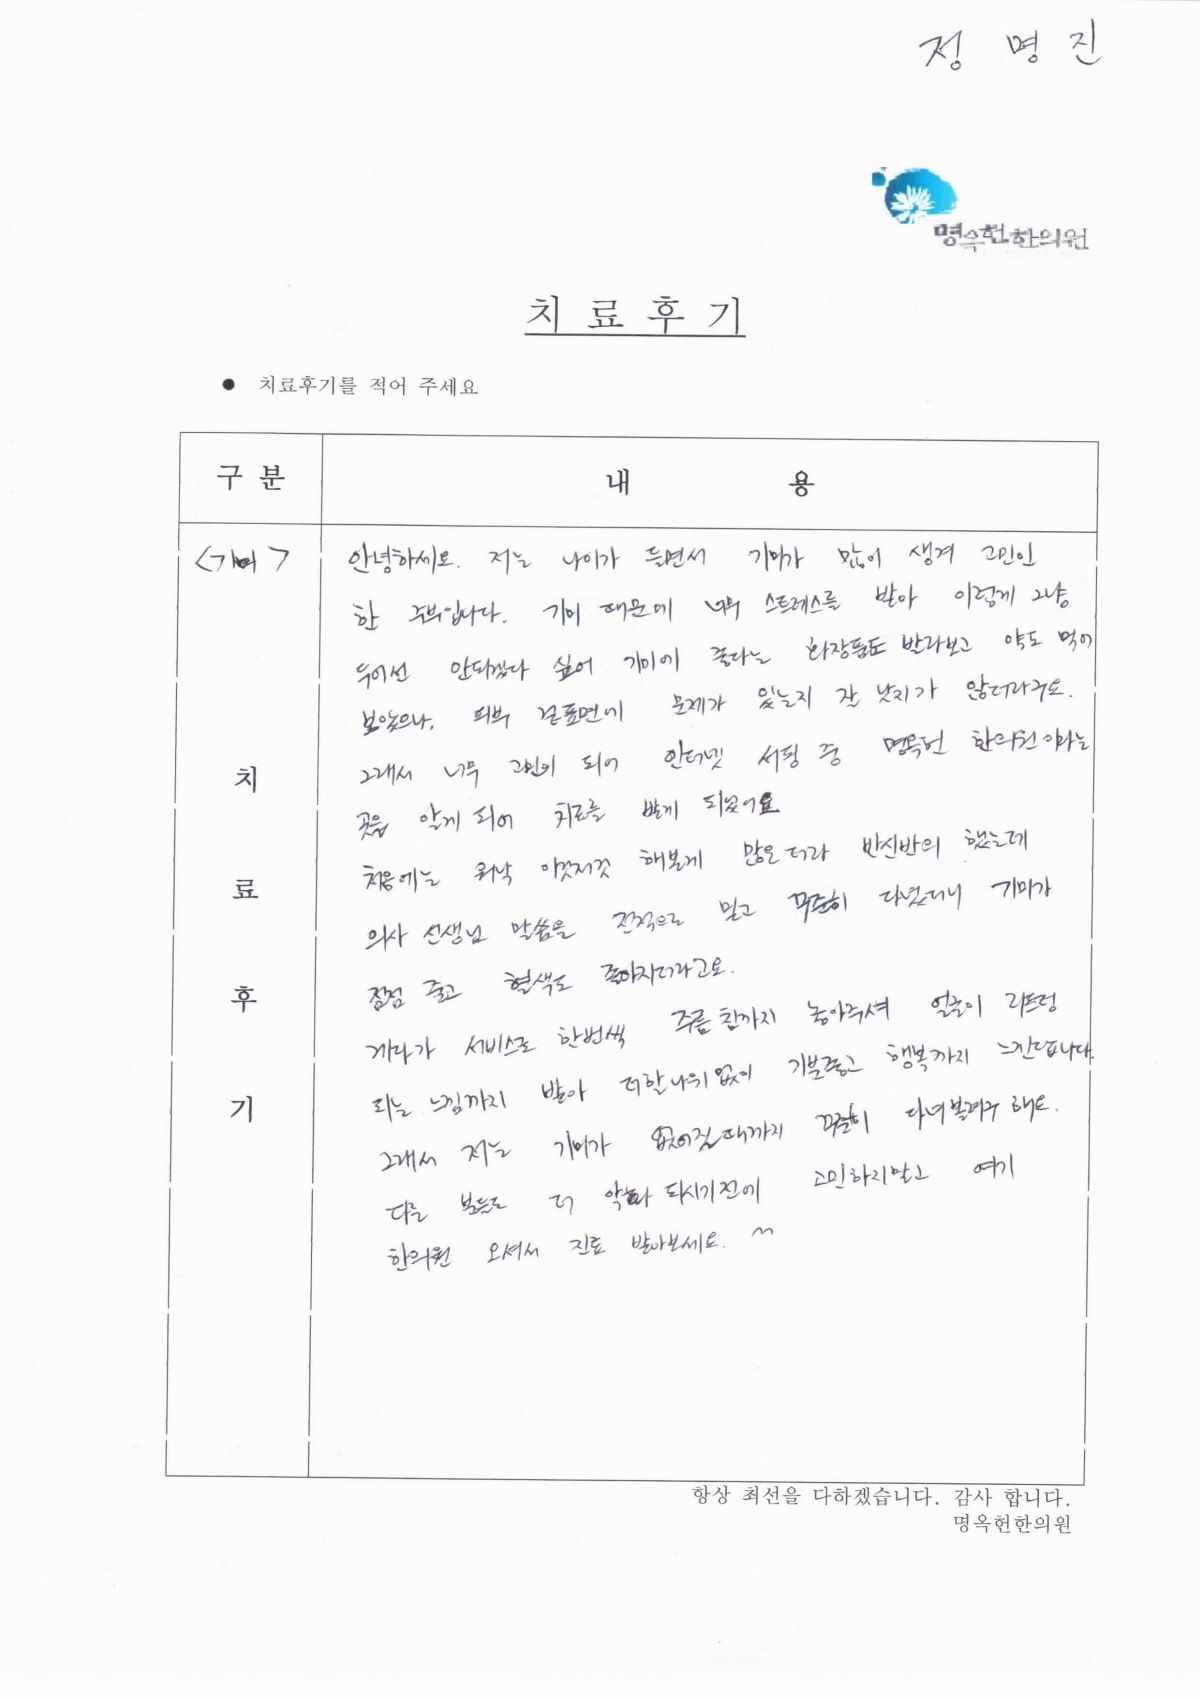 정 명 진
명옥헌한의원
치 료 후 기
● 치료후기를 적어 주세요
구 분
내 용
<기미>
치
료
후
기
안녕하세요. 저는 나이가 들면서 기미가 많이 생겨 고민인
한 주부입니다. 기미 때문에 너무 스트레스를 받아 이렇게 그냥
두어선 안되겠다 싶어 기미에 좋다는 화장품도 발라보고 약도 먹어
보았으나, 피부 겉표면에 문제가 있는지 잘 낫지가 않더라구요.
그래서 너무 고민이 되어 인터넷 서핑 중 명옥헌 한의원이라는
곳을 알게 되어 치료를 받게 되었어요
처음에는 워낙 이것저것 해본게 많은터라 반신반의 했는데
의사 선생님 말씀을 전적으로 믿고 꾸준히 다녔더니 기미가
점점 줄고 혈색도 좋아지더라고요.
게다가 서비스로 한번씩 주름침까지 놓아주셔 얼굴이 리프팅
되는 느낌까지 받아 더할나위없이 기분좋고 행복까지 느낀답니다.
그래서 저는 기미가 없어질때까지 꾸준히 다녀볼려구 해요.
다른 분들도 더 악화 되시기전에 고민하지말고 여기
한의원 오셔서 진료 받아보세요. ^^
항상 최선을 다하겠습니다. 감사 합니다.
명옥헌한의원